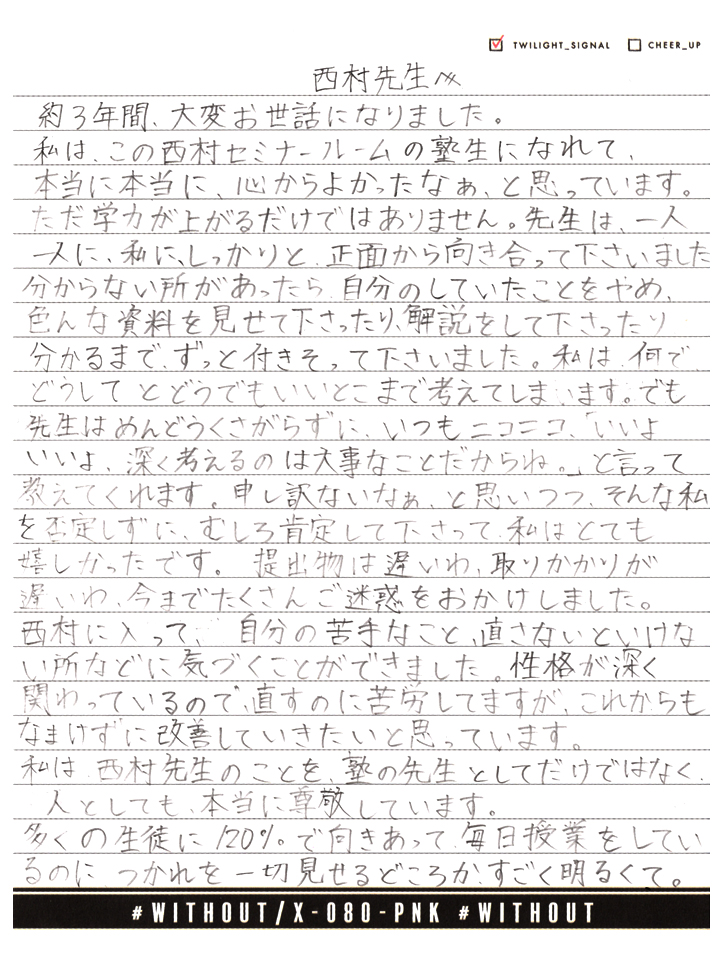 TWILIGHT_SIGNAL CHEER_UP
西村先生へ
約3年間、大変お世話になりました。
私は、この西村セミナールームの塾生になれて、
本当に本当に、心からよかったなぁ、と思っています。
ただ学力が上がるだけではありません。先生は、一人
一人に、私に、しっかりと、正面から向き合って下さいました
分からない所があったら、自分のしていたことをやめ、
色んな資料を見せて下さったり、解説をして下さったり
分かるまで、ずっと付きそって下さいました。私は、何で
どうしてとどうでもいいとこまで考えてしまいます。でも
先生はめんどうくさがらずに、いつもニコニコ、「いいよ
いいよ、深く考えるのは大事なことだからね。」と言って
教えてくれます。申し訳ないなぁ、と思いつつ、そんな私
を否定しずに、むしろ肯定して下さって、私はとても
嬉しかったです。提出物は遅いわ、取りかかりが
遅いわ、今までたくさんご迷惑をおかけしました。
西村に入って、自分の苦手なこと、直さないといけな
い所などに気づくことができました。性格が深く
関わっているので、直すのに苦労してますが、これからも
なまけずに改善していきたいと思っています。
私は、西村先生のことを、塾の先生としてだけではなく、
人としても、本当に尊敬しています。
多くの生徒に120%で向きあって、毎日授業をしてい
るのに、つかれを一切見せるどころか、すごく明るくて。
#WITHOUT/X-080-PNK #WITHOUT